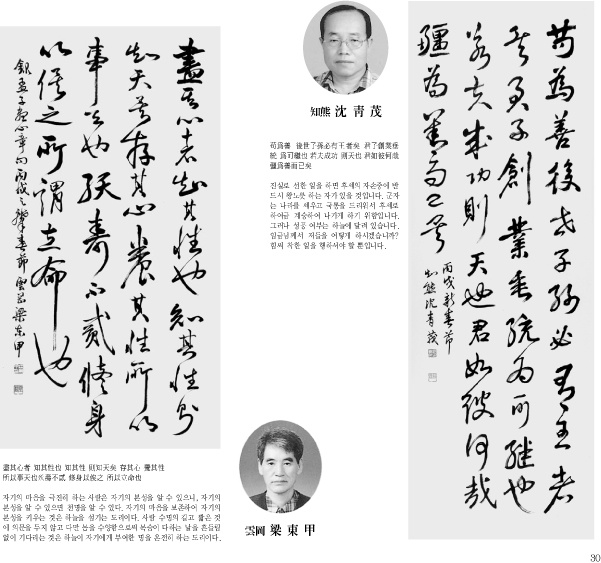 盡其心者知其性也知其性則
知天矣存其心養其性所以
事天也殀壽不貳修身
以俟之所謂立命也
雲岡梁東甲
知熊 沈 靑 茂
苟爲善 後世子孫必有王者矣 君子創業垂
統 爲可繼也 若夫成功 則天也 君如彼何哉
彊爲善而已矣
진실로 선한 일을 하면 후세의 자손중에 반
드시 왕노릇 하는 자가 있을 것입니다. 군자
는 나라를 세우고 국통을 드리워서 후세로
하여금 계승하여 나가게 하기 위함입니다.
그러나 성공 여부는 하늘에 달려 있습니다.
임금님께서 저들을 어떻게 하시겠습니까?
힘써 착한 일을 행하셔야 할 뿐입니다.
苟為善後世子孫必有王者
矣君子創業垂統為可継也
若夫成功則天也君如彼何哉
疆為善而已矣
丙戌新春節
知熊沈青茂
盡其心者 知其性也 知其性 則知天矣 存其心 養其性
所以事天也 殀壽不貳 修身以俟之 所以立命也
자기의 마음을 극진히 하는 사람은 자기의 본성을 알 수 있으니, 자기의
본성을 알 수 있으면 천명을 알 수 있다. 자기의 마음을 보존하여 자기의
본성을 키우는 것은 하늘을 섬기는 도리이다. 사람 수명의 길고 짧은 것
에 의문을 두지 않고 다만 몸을 수양함으로써 목숨이 다하는 날을 흔들림
없이 기다리는 것은 하늘이 자기에게 부여한 명을 온전히 하는 도리이다.
雲岡 梁 東 甲
30